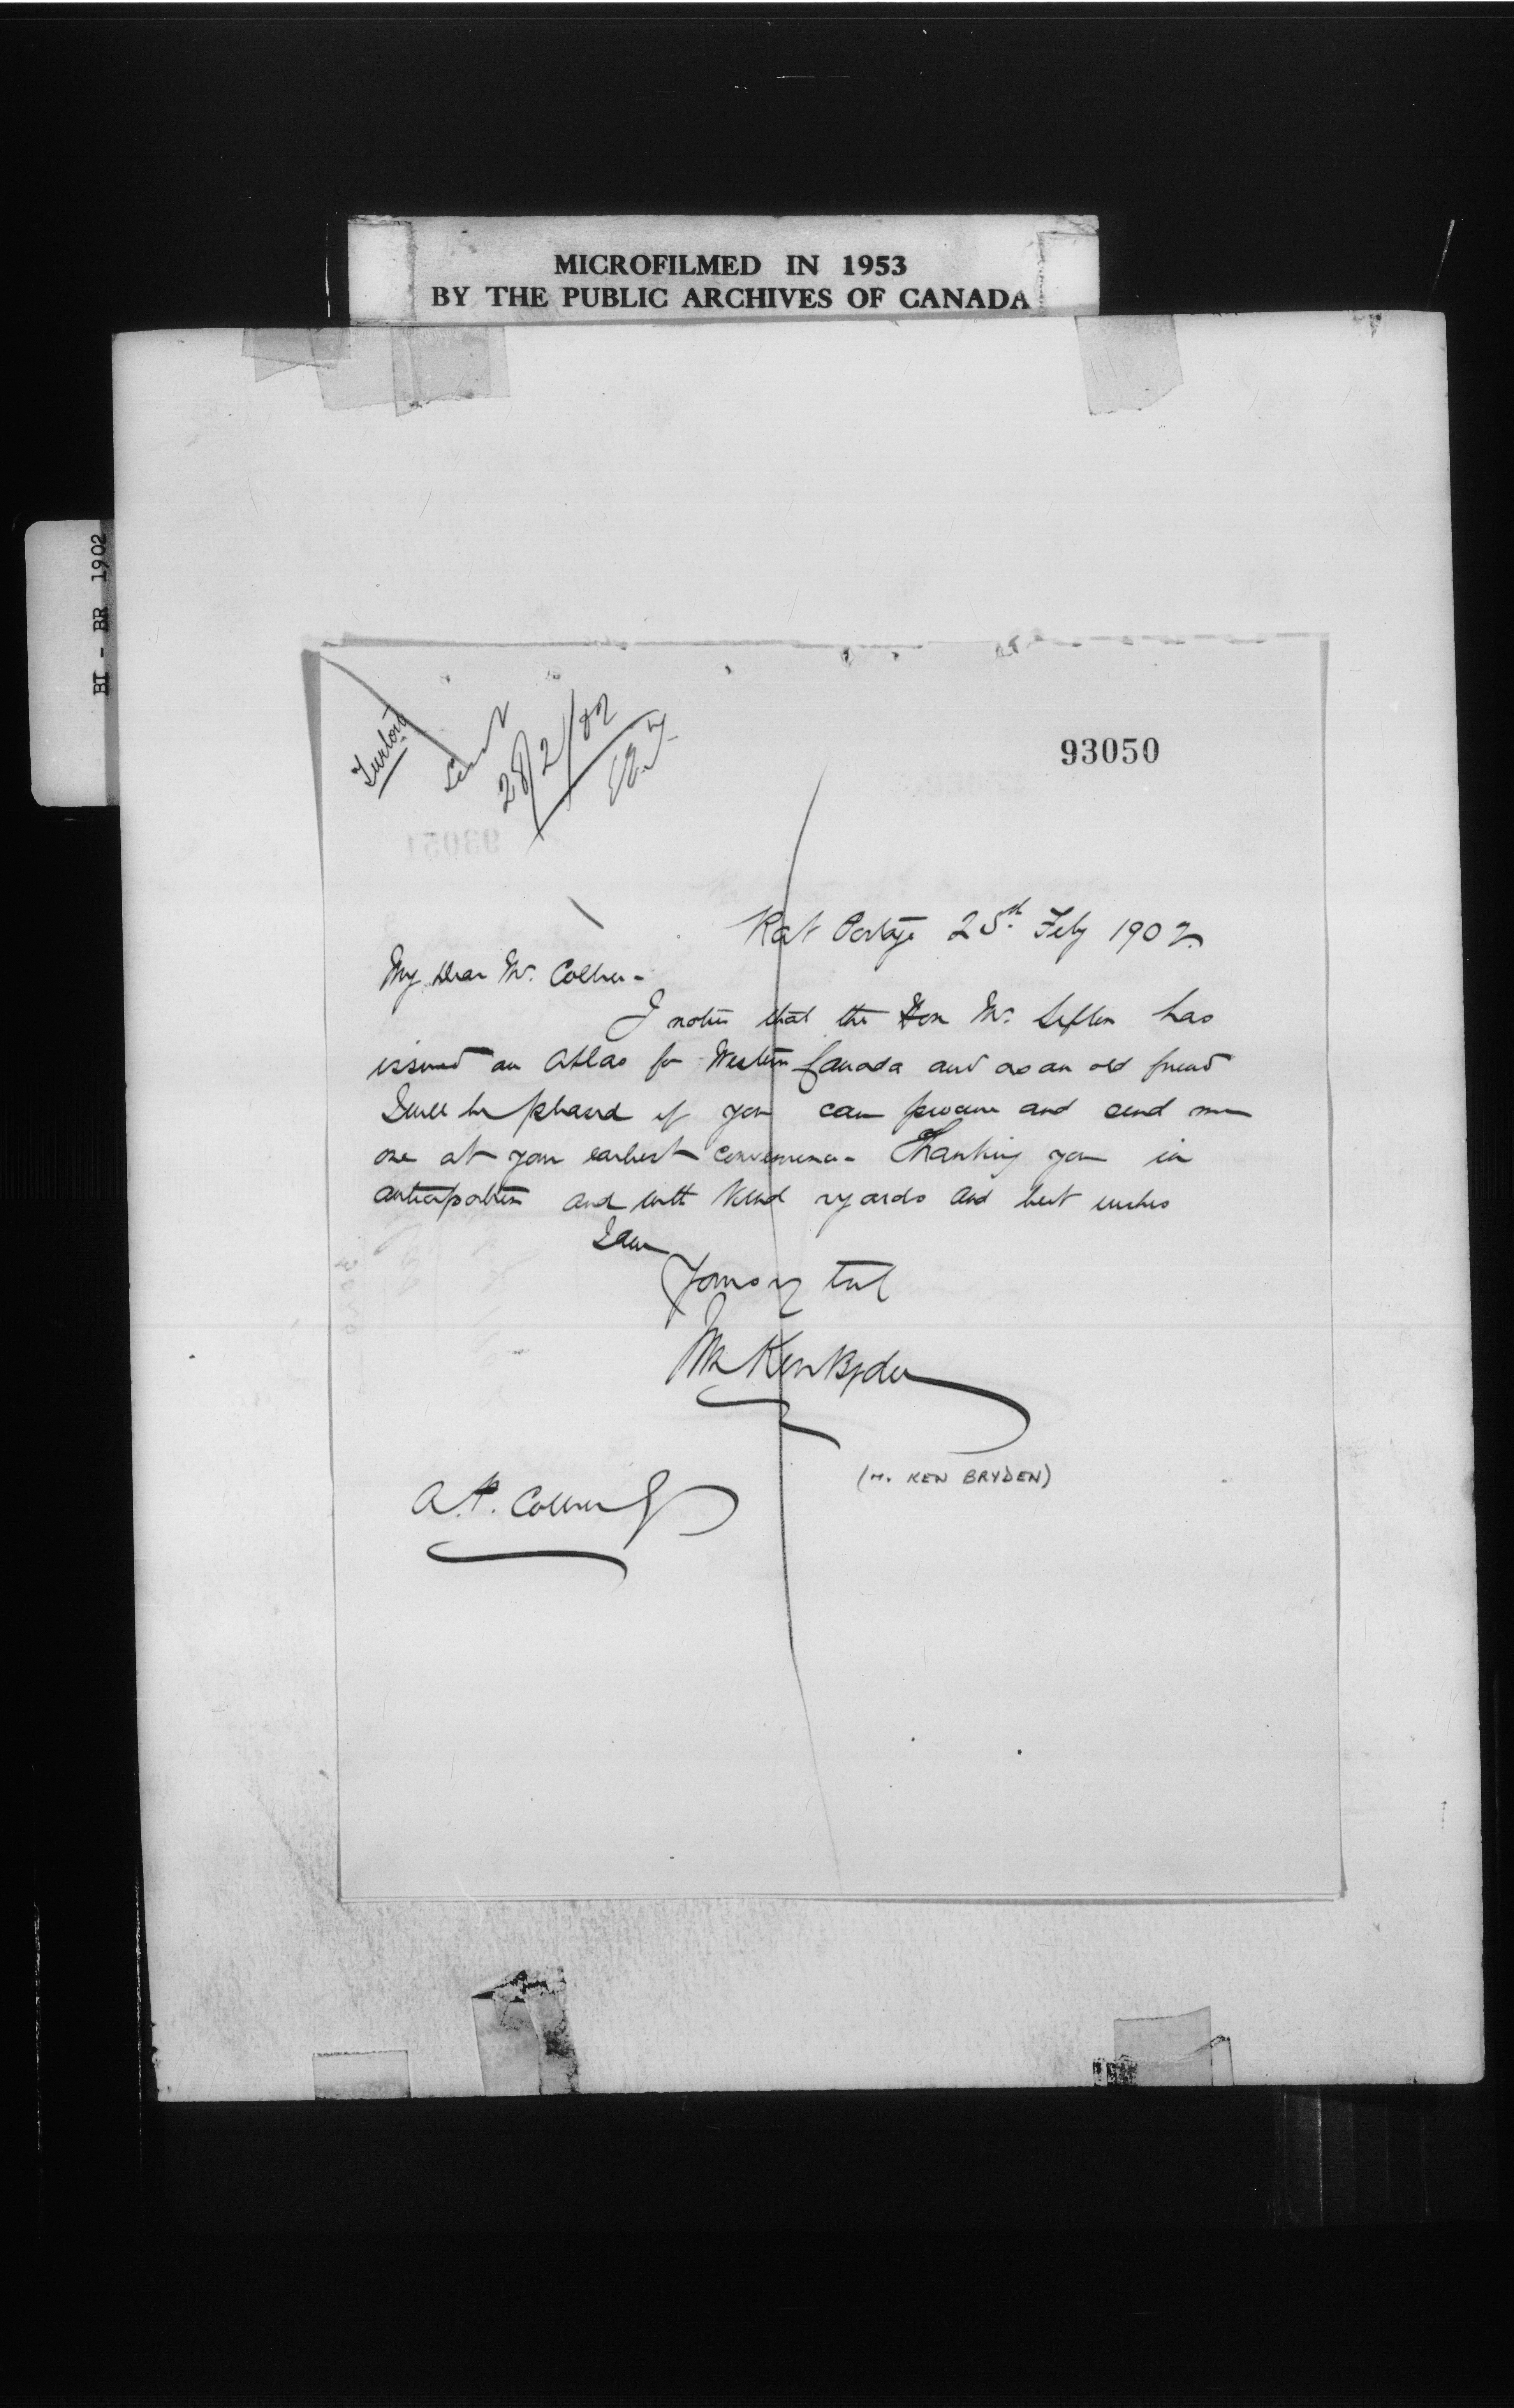 MICROFILMED IN 1953
BY THE PUBLIC ARCHIVES OF CANADA
BI - BR 1902
Sent
28/2/02
93050
Rat Portage 25th Feby 1902.
My Dear Mr. Collier -
I notice that the Hon Mr. Sifton has
issued an Atlas for Western Canada and as an old friend
I will be pleased if you can procure and send me
one at your earliest convenience - Thanking you in
anticipation and with kind regards and best wishes
I am
Yours very truly
Ken Bryden
(H. KEN BRYDEN)
A.P. Collier